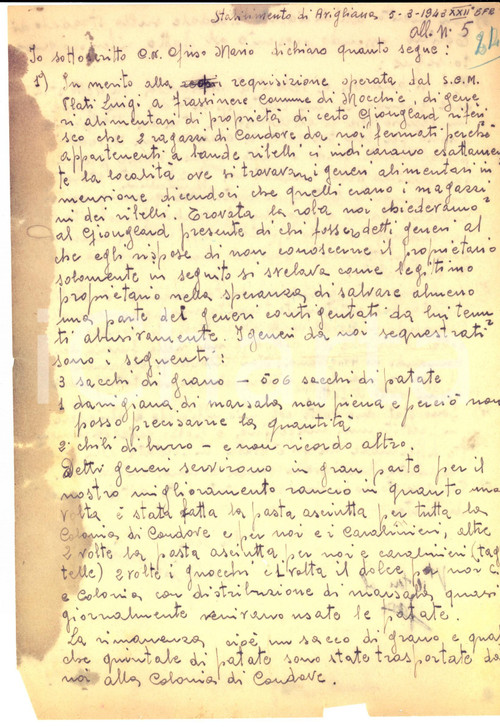 Stabilimento di Avigliana 5-3-1943 XXII° EFR
all. N. 5
24
Io sottoscritto C.N. Opiso Mario dichiaro quanto segue:
1°) In merito alla requisizione operata dal S.C.M.
Plati Luigi a Frassinere Comune di Mocchie, di gene
ri alimentari di proprietà di certo Giouglard riferi
sco che 2 ragazzi di Condove da noi fermati perchè
appartenenti a bande ribelli ci indicarono esattamen
te la località ove si trovavano i generi alimentari in
menzione dicendoci che quelli erano i magazzi
ni dei ribelli. Trovata la roba noi chiedevamo
al Giouglard presente di chi fossero detti generi al
che egli rispose di non conoscerne il proprietario
solamente in seguito si svelava come legittimo
proprietario nella speranza di salvare almeno
una parte dei generi contigentati da lui tenu
ti abusivamente. I generi da noi sequestrati
sono i seguenti:
3 sacchi di grano – 5 o 6 sacchi di patate
1 damigiana di marsala non piena e perciò non
posso precisarne la quantità
2 chili di burro – e non ricordo altro.
Detti generi servirono in gran parte per il
nostro miglioramento rancio in quanto una
volta è stata fatta la pasta asciutta per tutta la
Colonia di Condove e per noi e i Carabinieri, altre
2 volte la pasta asciutta per noi e carabinieri (tag
telle) 2 volte i gnocchi e 1 volta il dolce per noi C
e Colonia con distribuzione di marsala quasi
giornalmente venivano usate le patate.
La rimanenza cioè un sacco di grano e qual
che quintale di patate sono state trasportate da
noi alla Colonia di Condove.